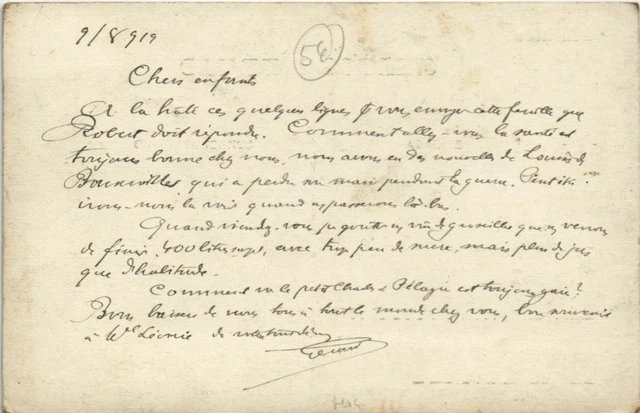 9/8 919
56
Chers enfants
A la hâte ces quelques lignes vous envoyer cette feuille que
Robert doit répondre. Comment allez-vous la santé est
toujours bonne chez nous, nous avons eu des nouvelles de Louise de
qui a perdu son mari pendant la guerre. Peut être
irons-nous la voir quand passerons là-bas.
Quand viendez-vous goutter vin de groseilles que ns venons
de finir, 400 litres avec trop peu de sucre, mais plus de jus
que d'habitude.
Comment va le petit Charles & Pélagie est toujours gaie?
Bons baisers de nous tous à tout le monde chez vous, bon souvenir
à Mel Léonie de